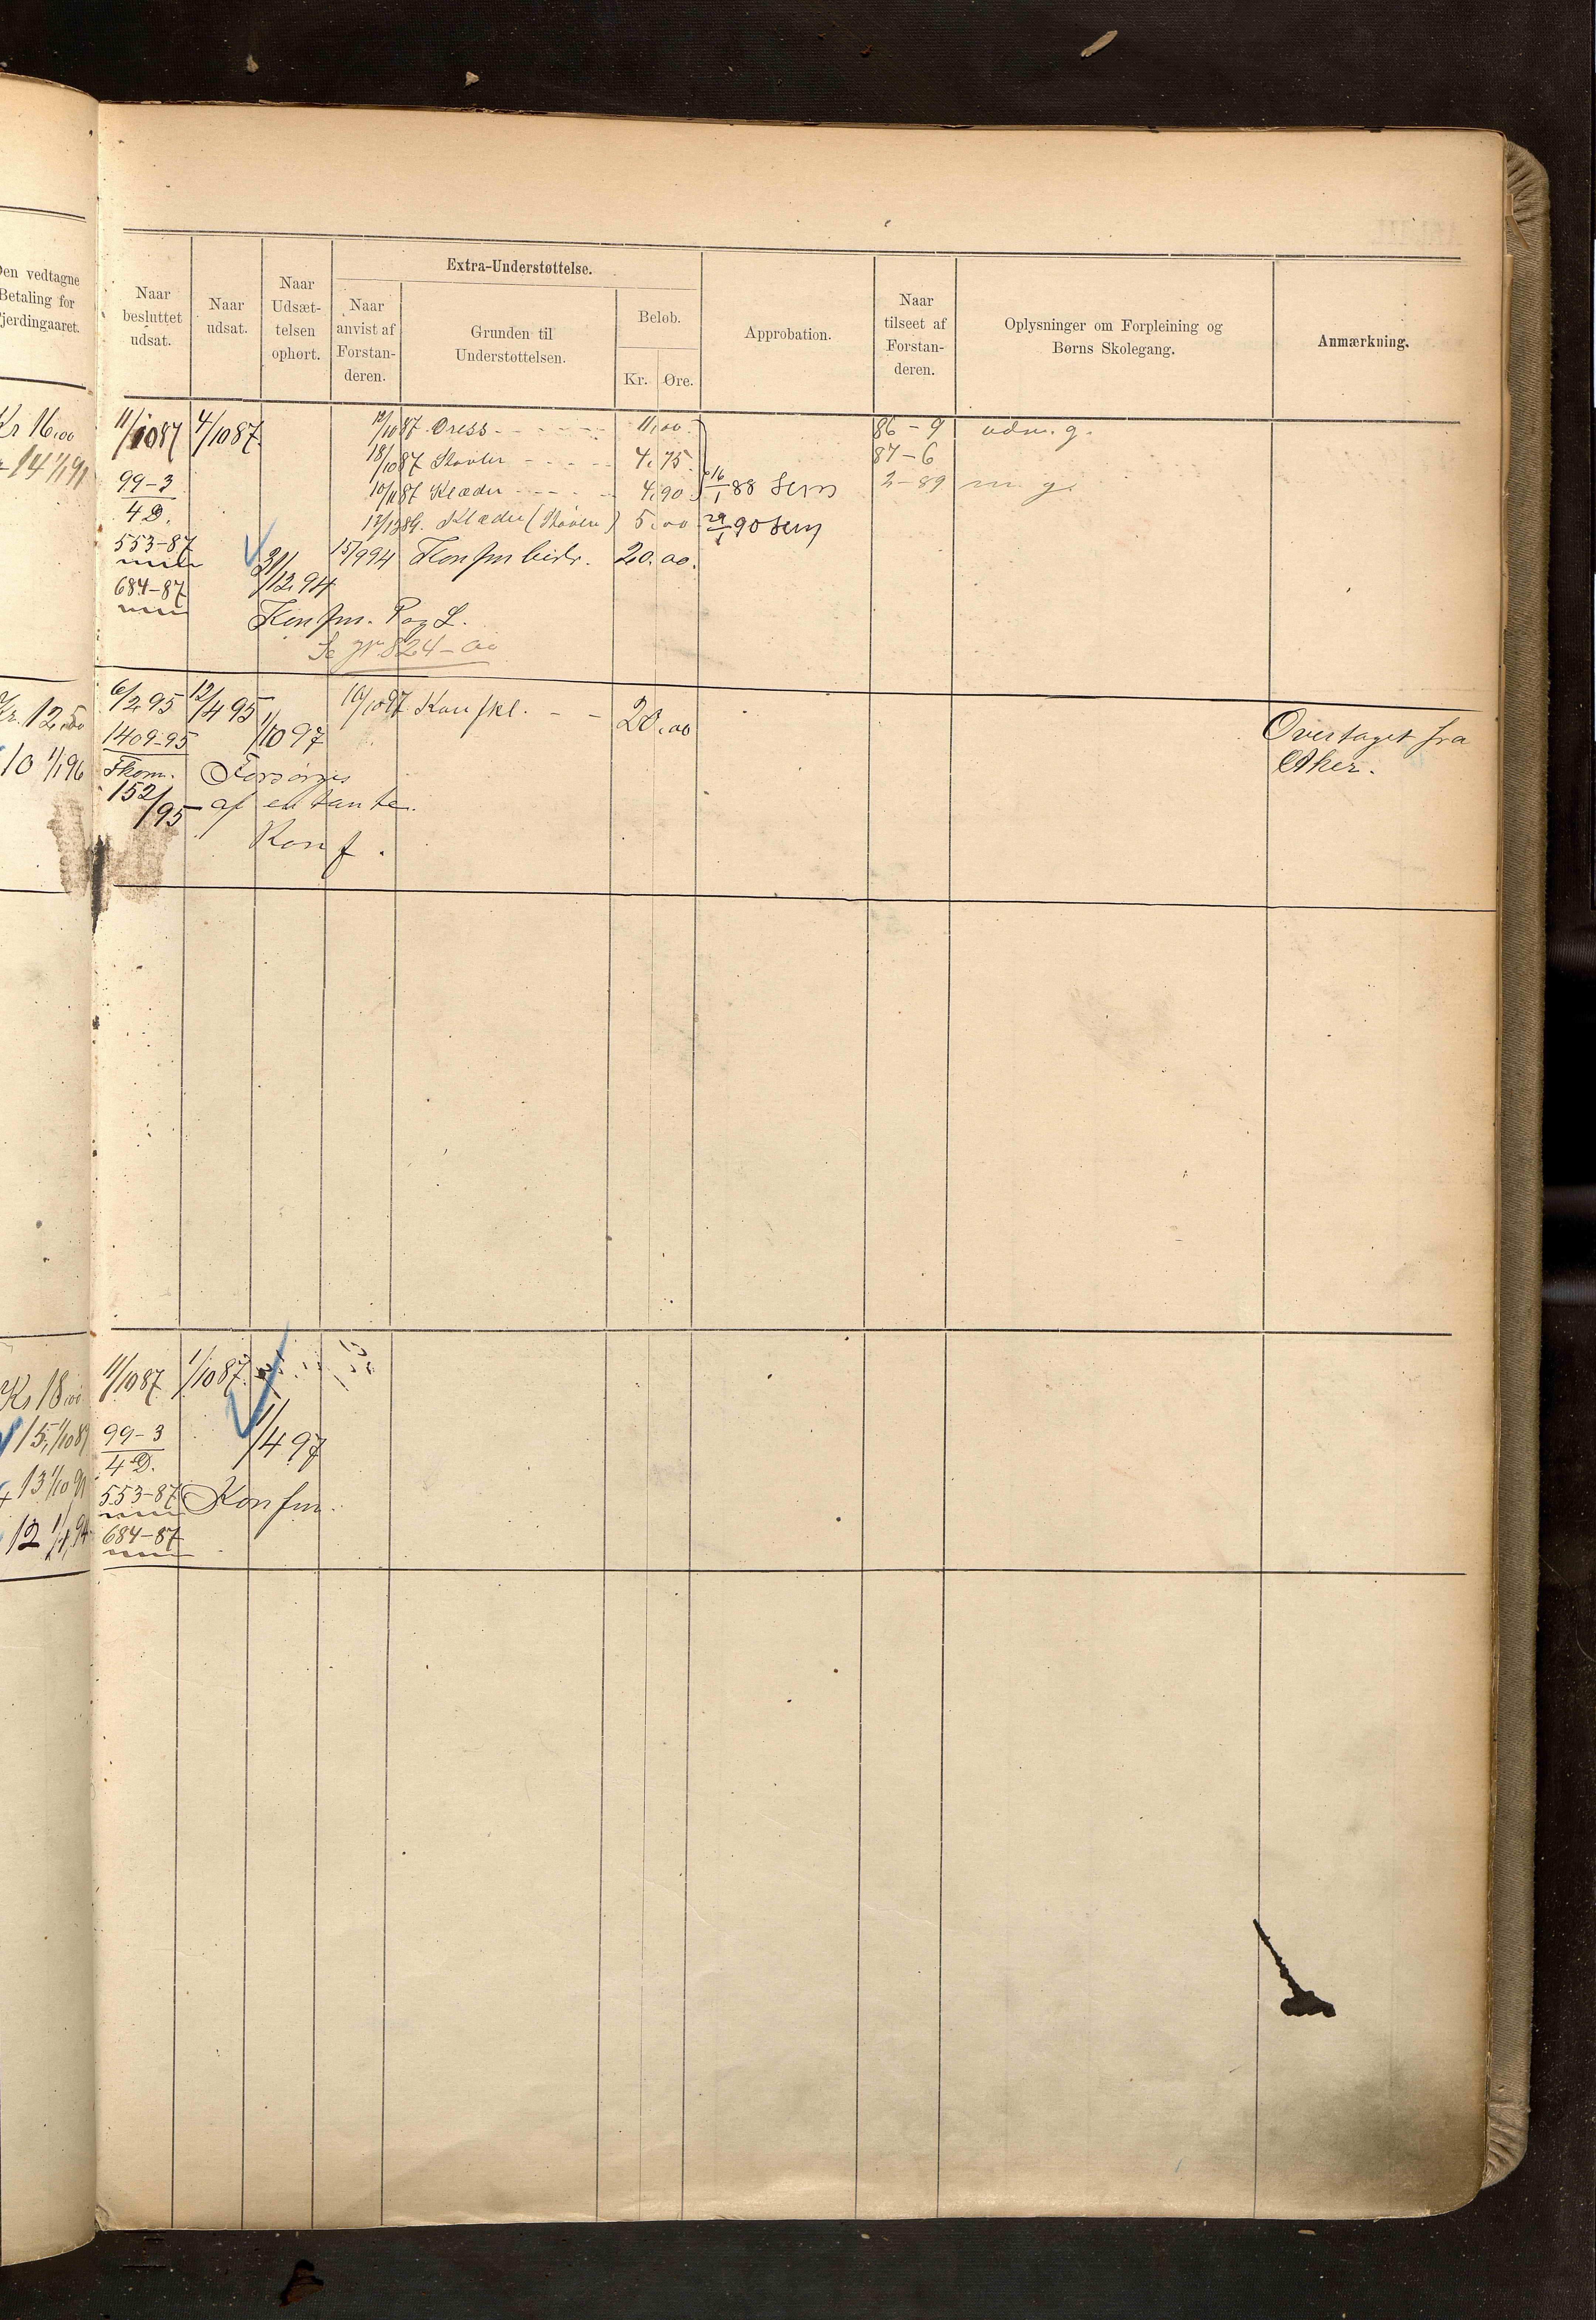 Den vedtagne
Betaling for
Fjerdingaaret.
Naar
besluttet
udsat.
Naar
udsat.
Naar
Udsæt-
telsen
ophørt.
Extra-Understøttelse.
Naar
anvist af
Forstan-
deren.
Grunden til
Understøttelsen.
Beløb.
Kr. Øre.
Approbation.
Naar
tilseet af
Forstan-
deren.
Oplysninger om Forpleining og
Børns Skolegang.
Anmærkning.
Kr 16,00
11/10 87 4/10 87. 12/10 87 Dress - - - - - 11,00 86-9 udm. g.
18/10 87 Støvler - - - - 4,75 87-6
14 1/1 91
99-3 10/11 87 Klæder - - - - 4,90 16/1 88 Sem 2-89 m. g.
4 D. 12/12 89. Klæder (Støvler) 5,00 29/1 90 Sem
553-87 31/12 94 15/9 94 Konfm bidr. 20.00.
684-87
Konfm. P og L.
Se gr. 824-00
Kr. 12,50
6/2 95 12/4 95 1/10 97 16/10 97 Konfkl. - - 20,00 Overtaget fra
Aker.
1409-95
10 1/1 96
Fkom. Forsørges
152/95 af en tante.
Konf.
Kr 18,00
11/10 87 1/10 87.
15, 1/10 89
99-3 1/4 97
4 D.
13 1/10 91
553-87 Konfm.
12 1/4 94
684-87